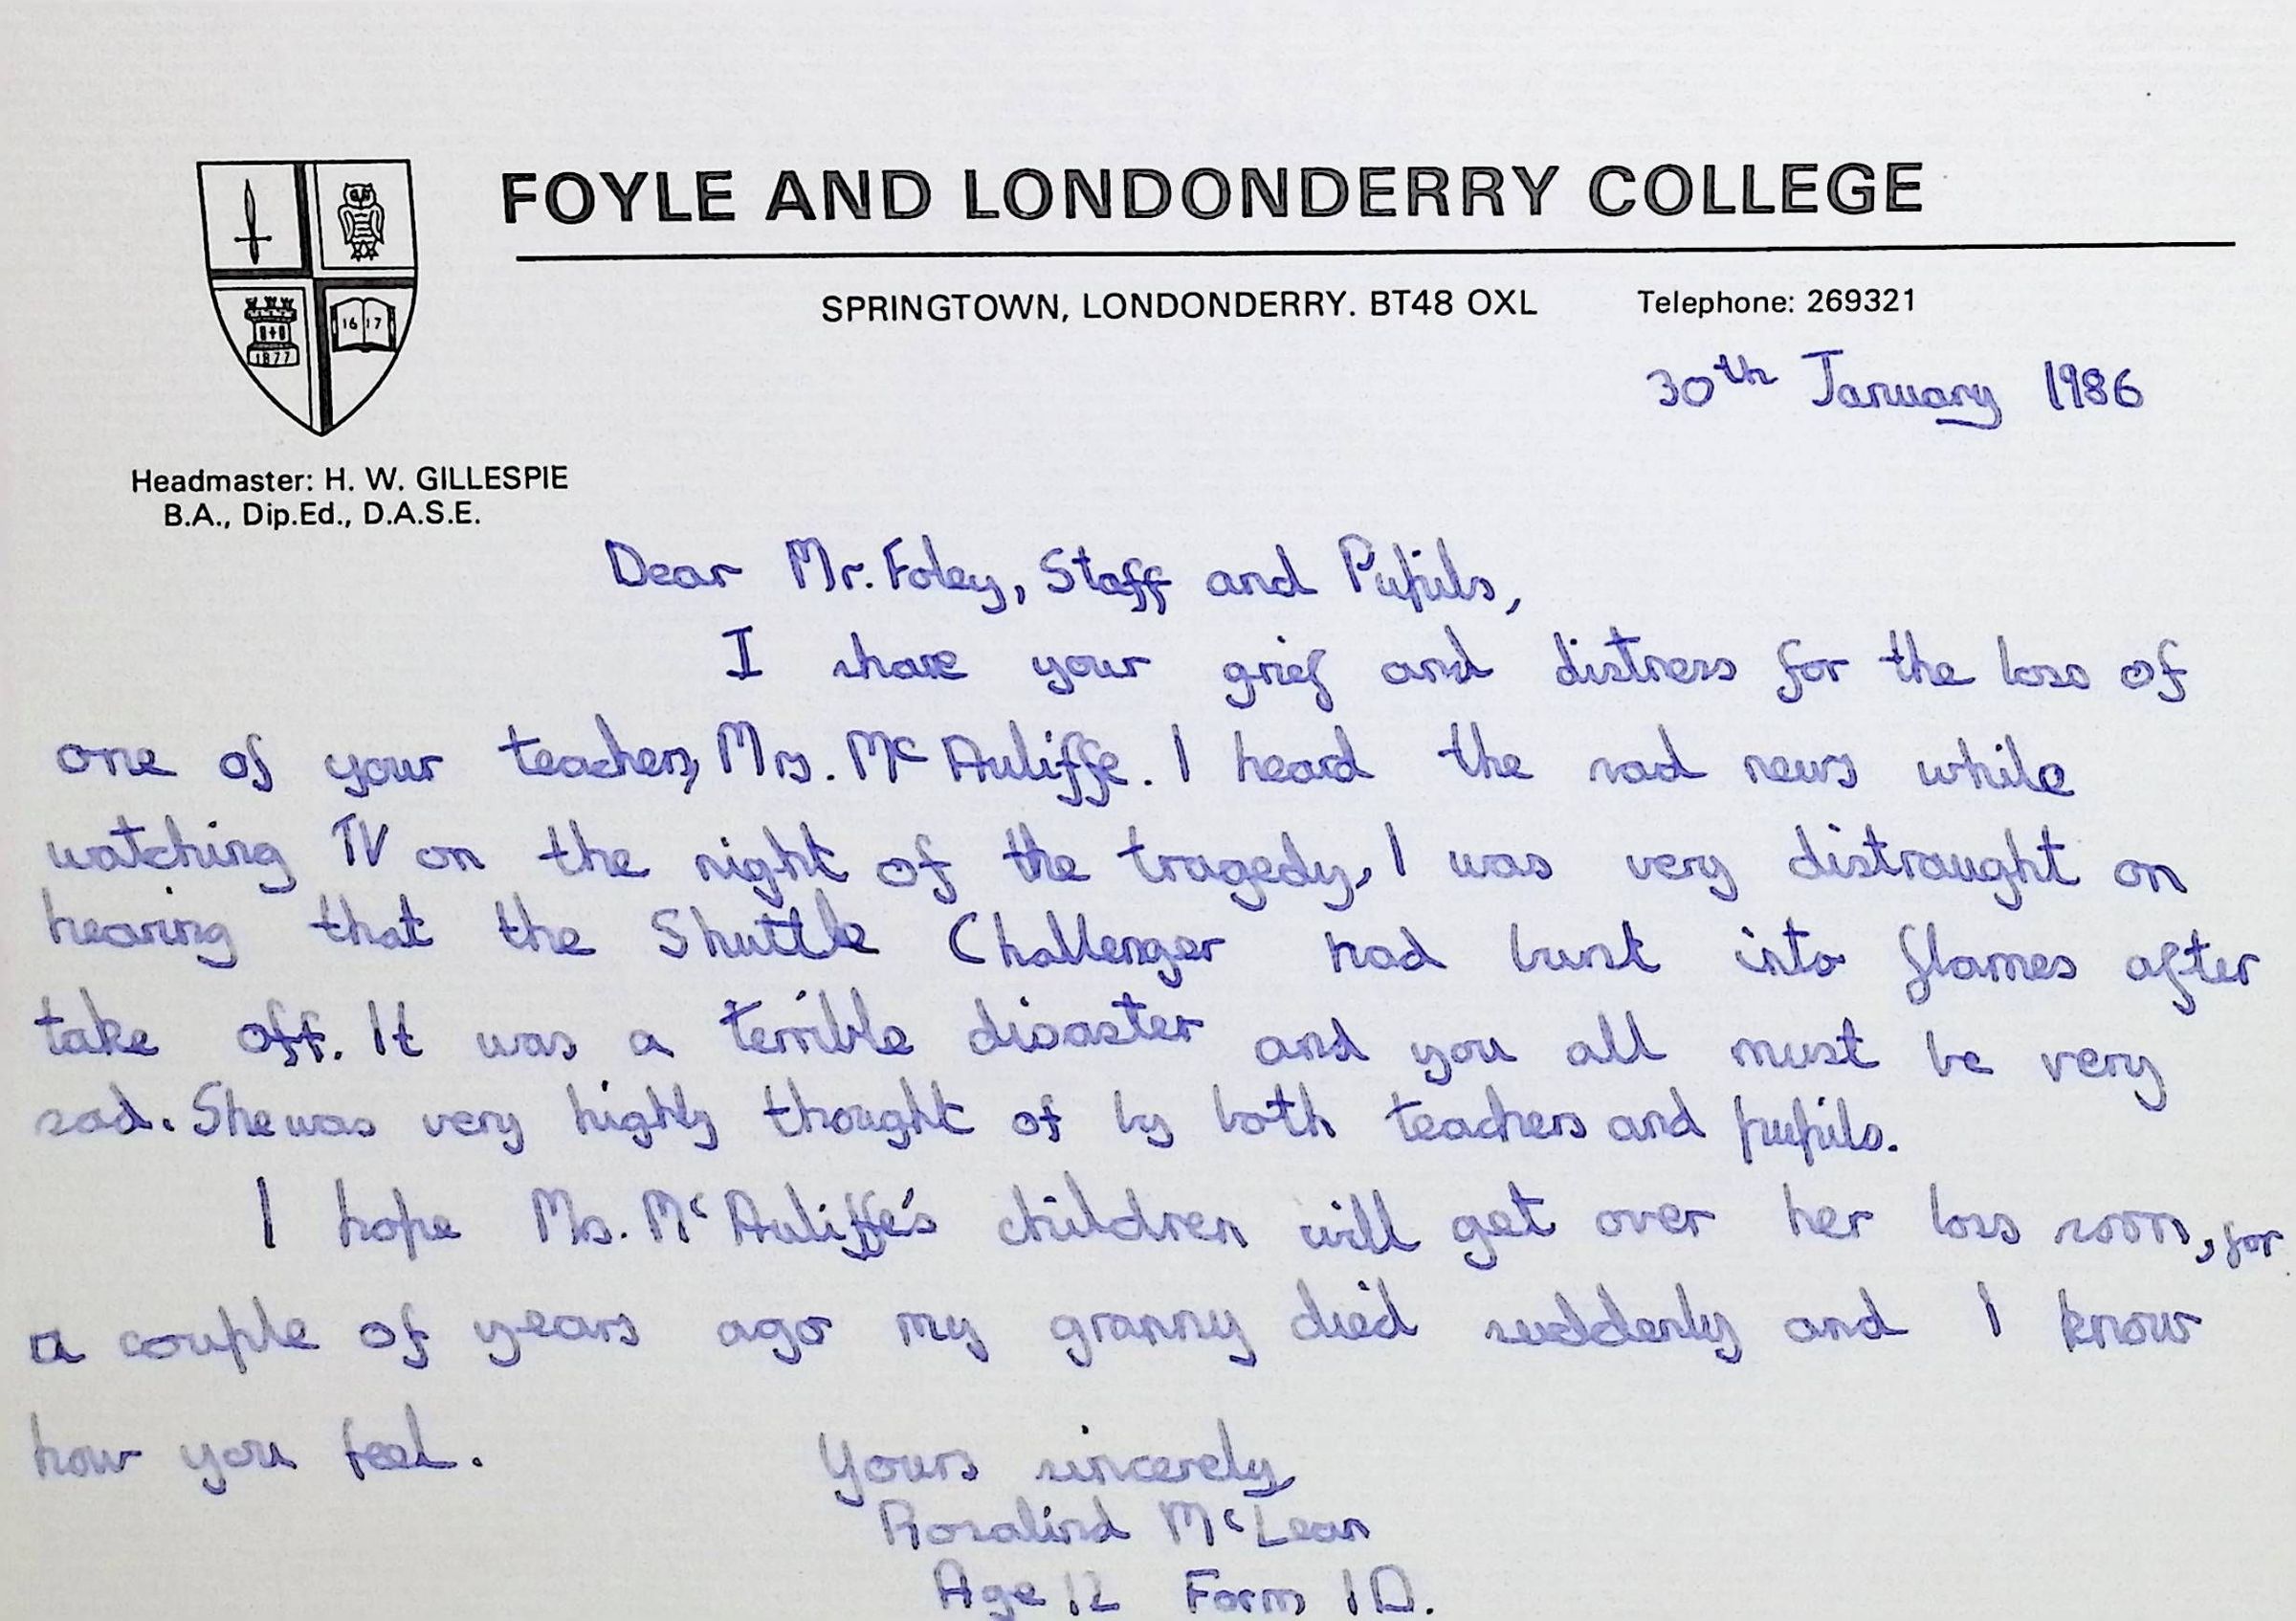 FOYLE AND LONDONDERRY COLLEGE
SPRINGTOWN, LONDONDERRY. BT48 OXL Telephone: 269321
16 17
1877
30th January 1986
Headmaster: H. W. GILLESPIE
B.A., Dip.Ed., D.A.S.E.
Dear Mr. Foley, Staff and Pupils,
I share your grief and distress for the loss of
one of your teachers, Mrs. McAuliffe. I heard the sad news while
watching TV on the night of the tragedy. I was very distraught on
hearing that the Shuttle Challenger had burst into flames after
take off. It was a terrible disaster and you all must be very
sad. She was very highly thought of by both teachers and pupils.
I hope Ms. McAuliffe's children will get over her loss soon, for
a couple of years ago my granny died suddenly and I know
how you feel.
Yours sincerely
Rosalind McLean
Age 12 Form 1D.